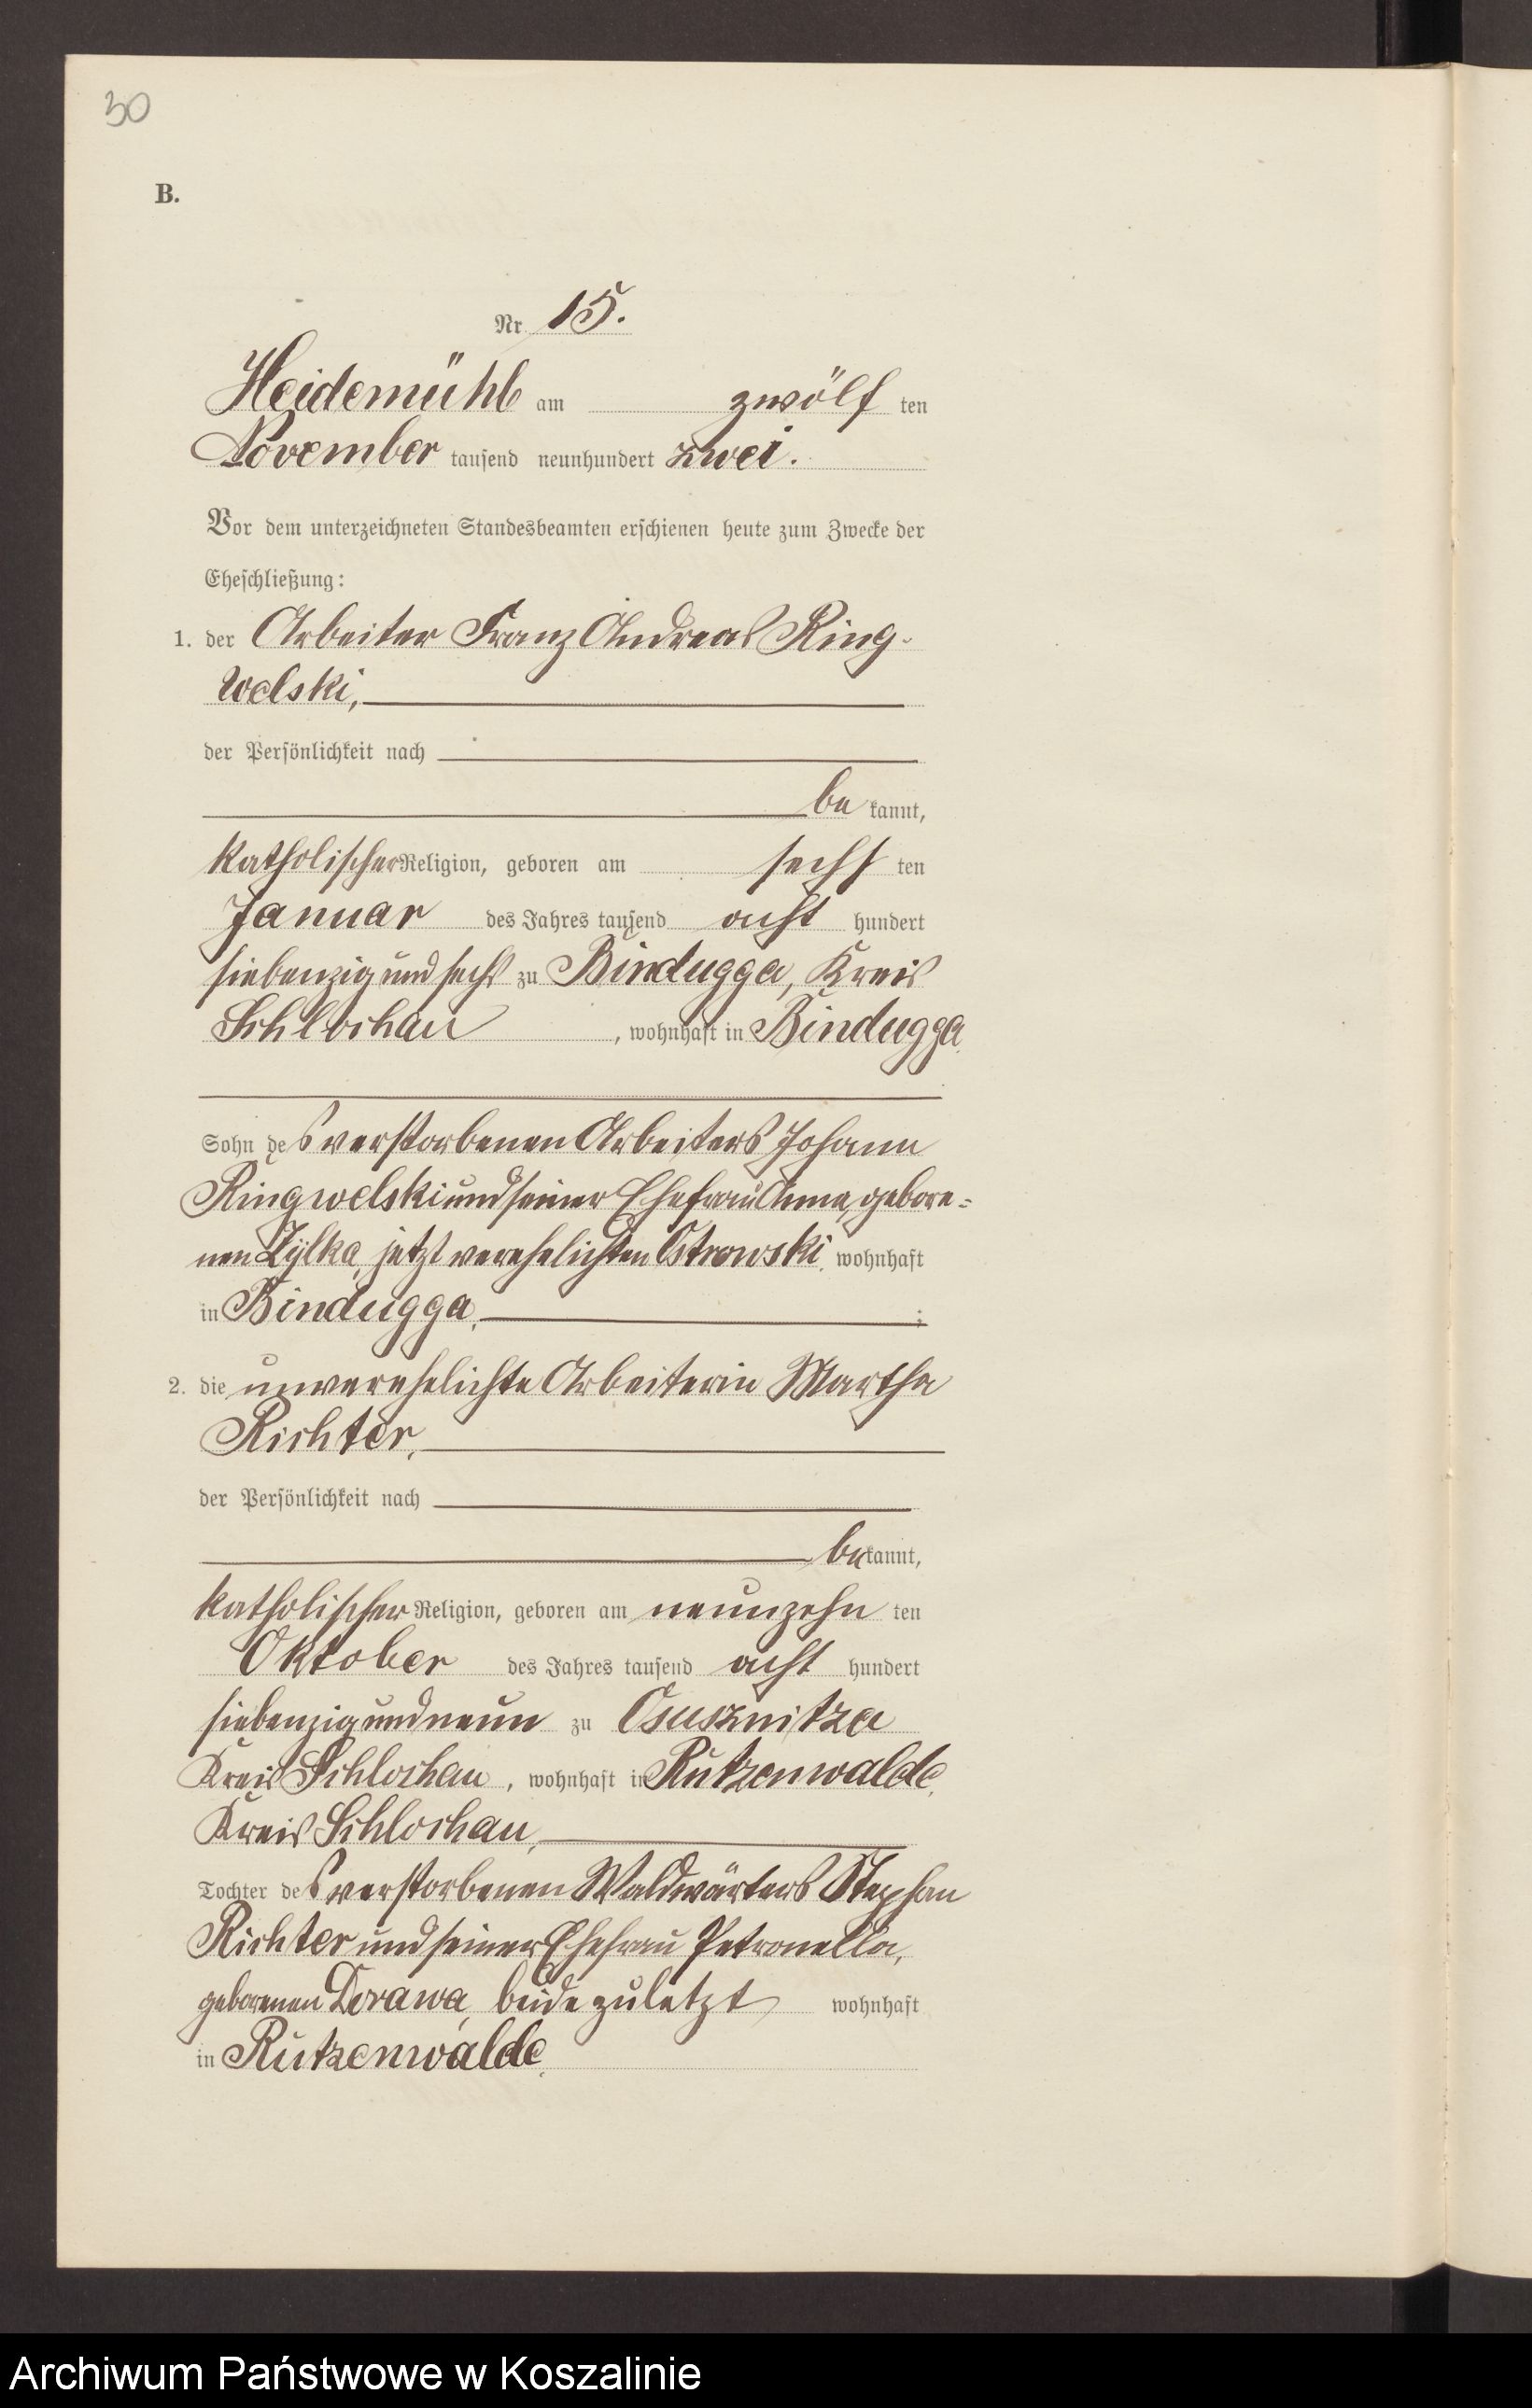 30
B.
Nr. 15.
Heidemühl am zwölf ten
November tausend neunhundert zwei.
Vor dem unterzeichneten Standesbeamten erschienen heute zum Zwecke der
Eheschließung:
1. der Arbeiter Franz Andreas Ring-
welski,
der Persönlichkeit nach
be kannt,
katholischer Religion, geboren am sechs ten
Januar des Jahres tausend acht hundert
siebenzig und sechs zu Bindugga, Kreis
Schlochau, wohnhaft in Bindugga,
Sohn des verstorbenen Arbeiters Johann
Ringwelski und seiner Ehefrau Anna, gebore=
nen Zylka, jetzt verehelichten Ostrowski, wohnhaft
in Bindugga, ;
2. die unverehelichte Arbeiterin Martha
Richter,
der Persönlichkeit nach
be kannt,
katholischer Religion, geboren am neunzehn ten
Oktober des Jahres tausend acht hundert
siebenzig und neun zu Osusznitza
Kreis Schlochau, wohnhaft in Rutzenwalde,
Kreis Schlochau,
Tochter des verstorbenen Waldwärters Stephan
Richter und seiner Ehefrau Petronella,
geborenen Dorawa, beide zuletzt wohnhaft
in Rutzenwalde.
Archiwum Państwowe w Koszalinie